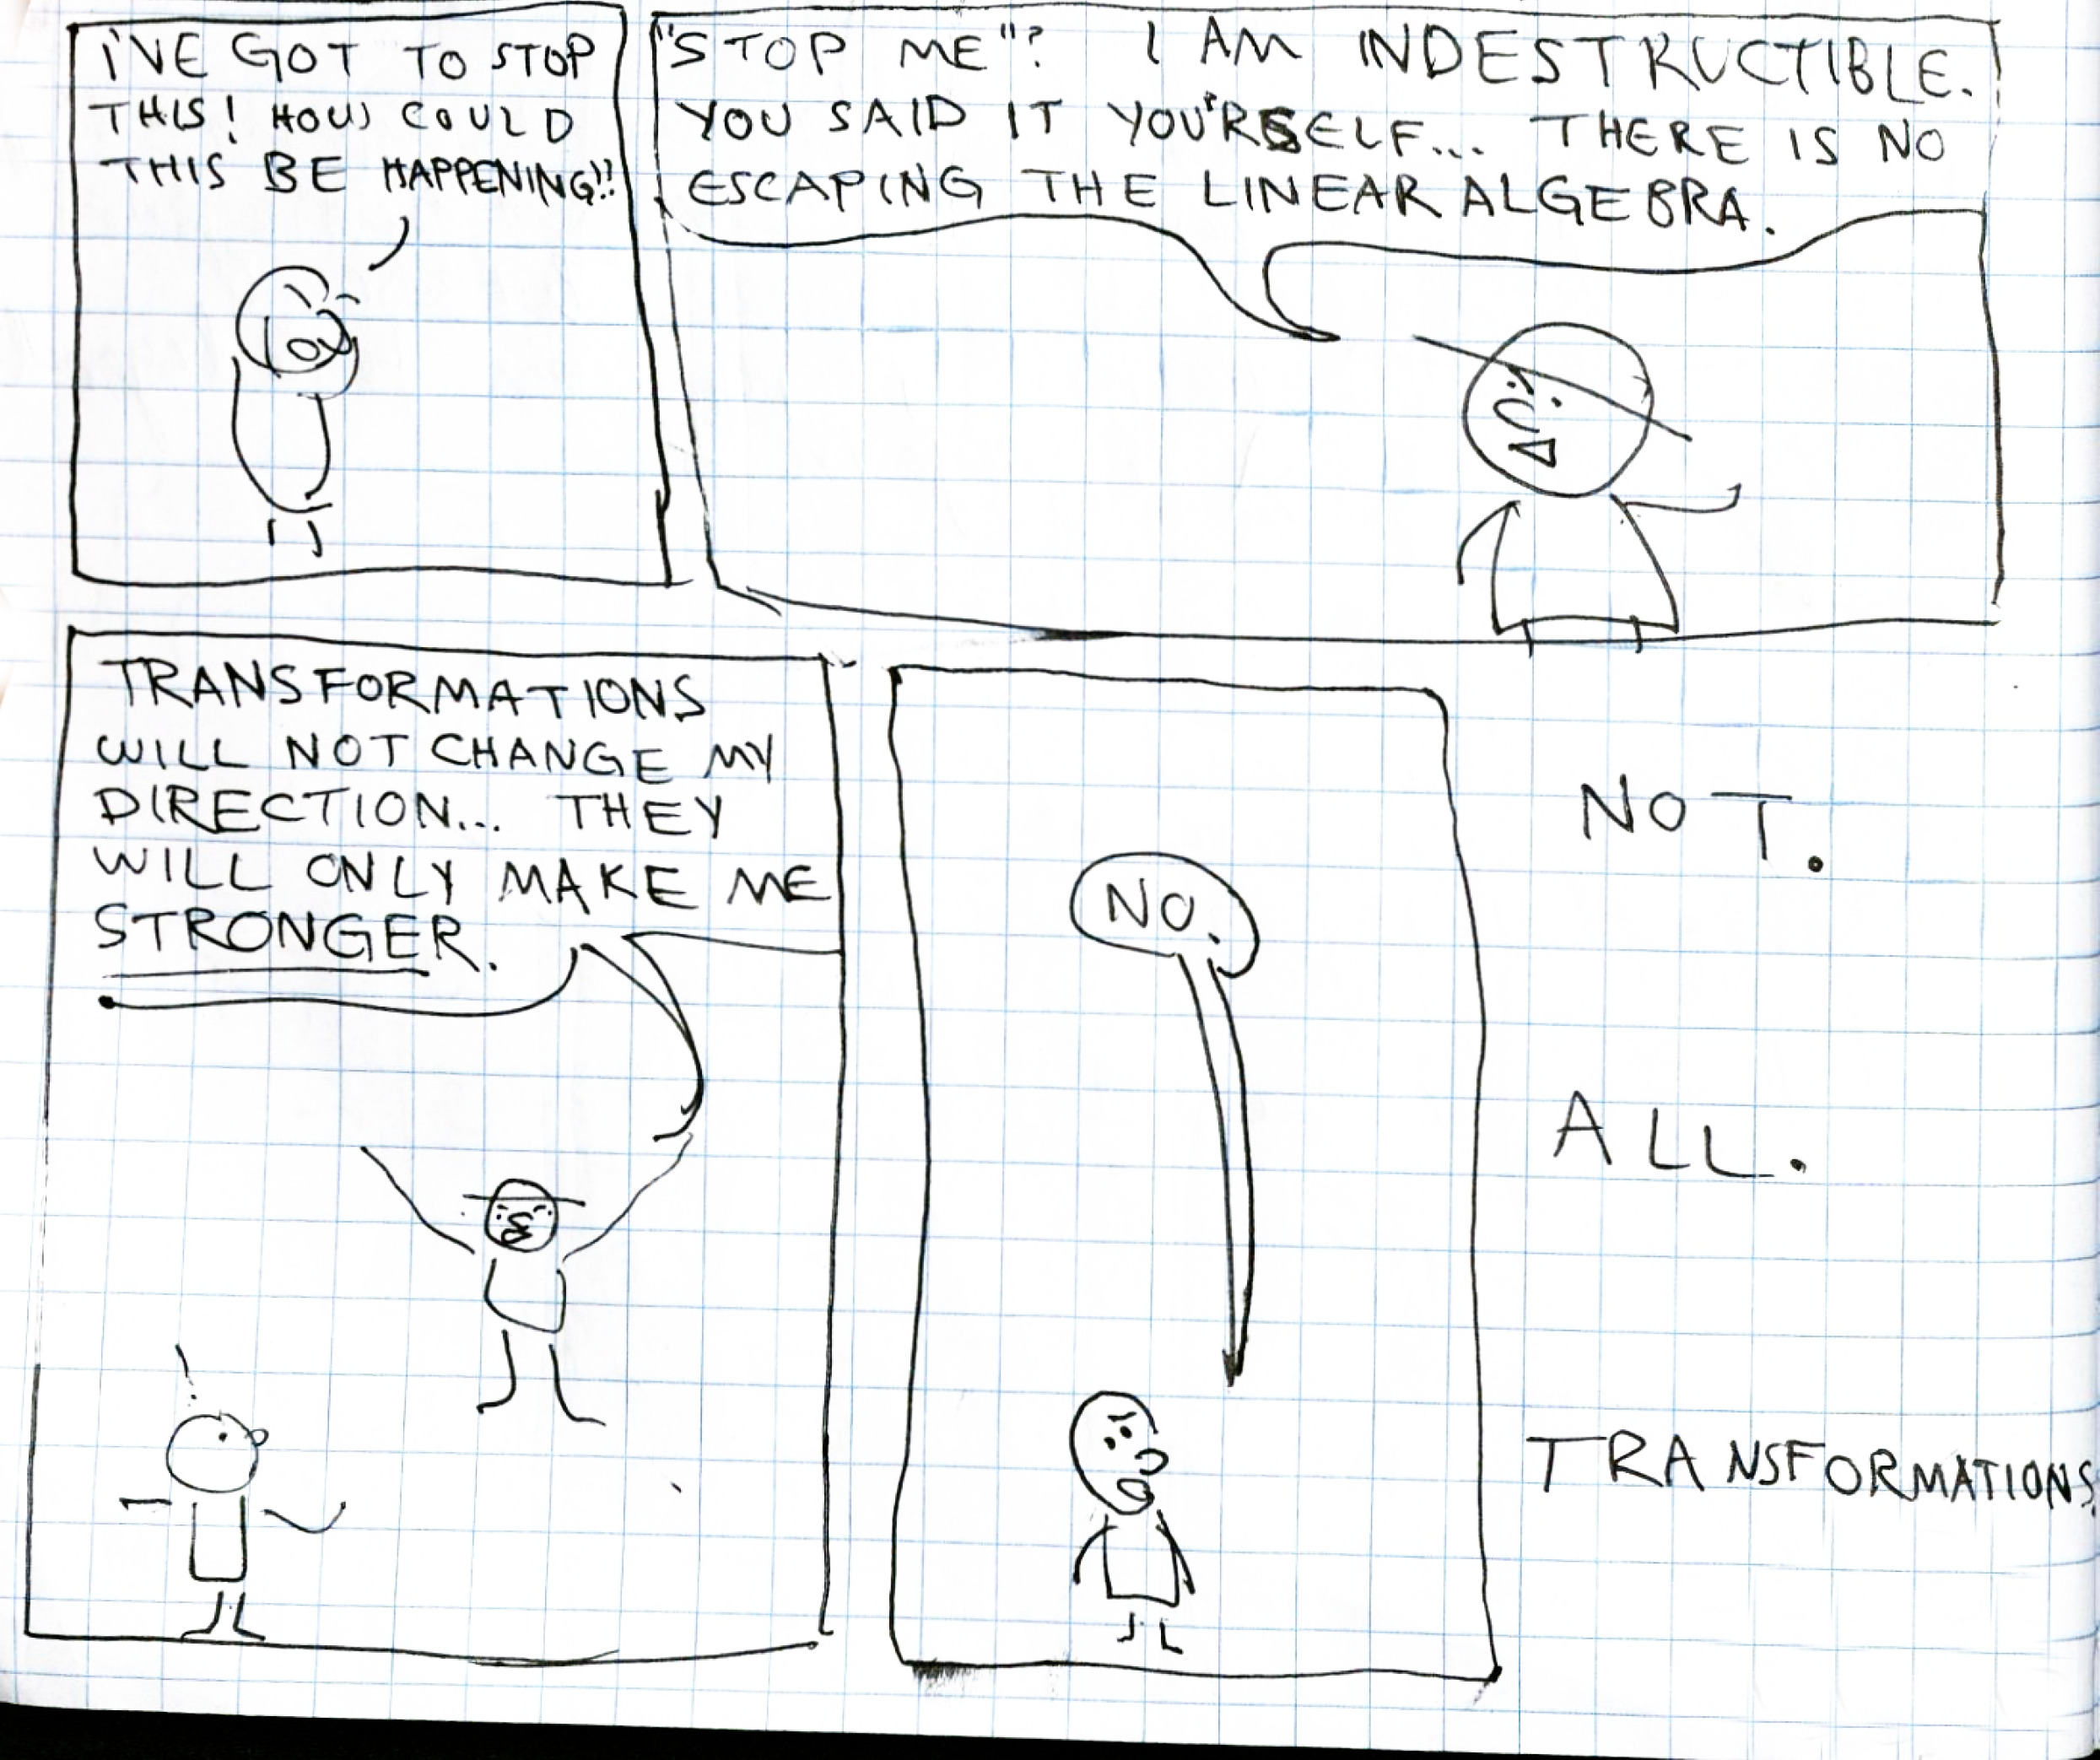 I'VE GOT TO STOP
THIS! HOW COULD
THIS BE HAPPENING!!
"STOP ME"? I AM INDESTRUCTIBLE.
YOU SAID IT YOU'RSELF... THERE IS NO
ESCAPING THE LINEAR ALGEBRA.
TRANSFORMATIONS
WILL NOT CHANGE MY
DIRECTION... THEY
WILL ONLY MAKE ME
STRONGER.
!
NO.
NOT.
ALL.
TRANSFORMATIONS